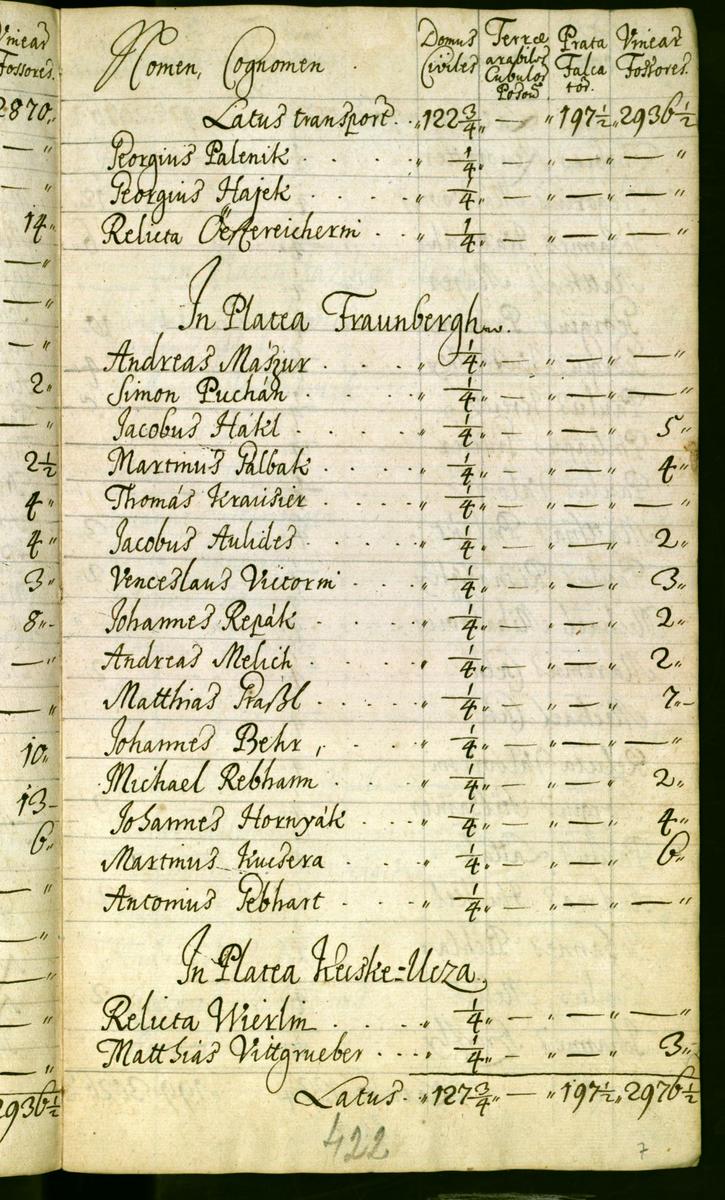 Vinear
Fossores.
2870„
— „
— „
14„
— „
— „
— „
2„
— „
2½
4„
4„
3„
8„-
— „
— „
10„
13-
6„
— „
— „
— „
— „
— „
2936½
Nomen, Cognomen . Domus Civiles Terræ arabiles Cubulor Poson Prata Falca tor. Vinear Fossores.
Latus transport . . „ 122¾ „ — „ 197½ „ 2936½
Georgius Palenik . . . . „ ¼ „ — „ — „ — „
Georgius Hajek . . . . „ ¼ „ — „ — „ — „
Relicta Öestereicherin . . „ ¼ „ — „ — „ — „
In Platea Fraunbergh
Andreas Maszur . . . . „ ¼ „ — „ — „ — „
Simon Puchán . . . . „ ¼ „ — „ — „ — „
Jacobus Hákl . . . . „ ¼ „ — „ — „ 5„
Martinus Galbak . . . . „ ¼ „ — „ — „ 4„
Thomás Krausier . . . . „ ¼ „ — „ — „ — „
Jacobus Aulides . . . . „ ¼ „ — „ — „ 2„
Venceslaus Victorin . . . „ ¼ „ — „ — „ 3„
Johannes Repák . . . . „ ¼ „ — „ — „ 2„
Andreas Melich . . . . „ ¼ „ — „ — „ 2„
Matthias Graßl . . . . „ ¼ „ — „ — „ 7„-
Johannes Behr , . . . „ ¼ „ — „ — „ — „
Michael Rebhann . . . „ ¼ „ — „ — „ 2„
Johannes Hornyák . . . „ ¼ „ — „ — „ 4„
Martinus Kucsera . . . „ ¼ „ — „ — „ 6„
Antonius Gebhart . . . „ ¼ „ — „ — „ — „
In Platea Kecske=Ucza
Relicta Wierlin . . . . „ ¼ „ — „ — „ — „
Matthias Vittgrueber . . . „ ¼ „ — „ — „ 3„
Latus . „ 127¾ „ — „ 197½ „ 2976½
422
7